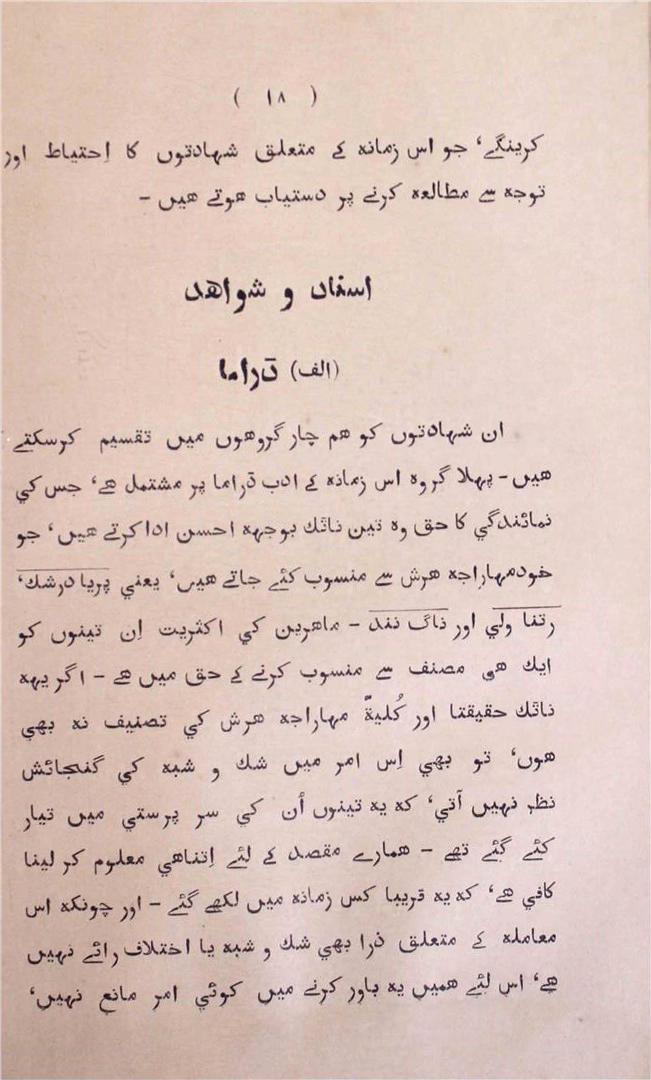 ( ۱۸ )
کرینگے‘ جو اس زمانہ کے متعلق شہادتوں کا اِحتیاط اور
توجہ سے مطالعہ کرنے پر دستیاب ہوتے ہیں -
اسناد و شواہد
(الف) ڈراما
ان شہادتوں کو ہم چار گروہوں میں تقسیم کرسکتے
ہیں - پہلا گروہ اس زمانہ کے ادب ڈراما پر مشتمل ہے‘ جس کی
نمائندگی کا حق وہ تین ناٹک بوجہہ احسن ادا کرتے ہیں‘ جو
خود مہاراجہ ہرش سے منسوب کئے جاتے ہیں‘ یعنی پریا درشک‘
رتنا ولی اور ناگ نند - ماہرین کی اکثریت اِن تینوں کو
ایک ہی مصنف سے منسوب کرنے کے حق میں ہے - اگر یہہ
ناٹک حقیقتا اور کُلیۃً مہاراجہ ہرش کی تصنیف نہ بھی
ہوں‘ تو بھی اِس امر میں شک و شبہ کی گنجائش
نظر نہیں آتی‘ کہ یہ تینوں اُن کی سر پرستی میں تیار
کئے گئے تھے - ہمارے مقصد کے لئے اِتناہی معلوم کر لینا
کافی ہے‘ کہ یہ قریبا کس زمانہ میں لکھے گئے - اور چونکہ اس
معاملہ کے متعلق ذرا بھی شک و شبہ یا اختلاف رائے نہیں
ہے‘ اس لئے ہمیں یہ باور کرنے میں کوئی امر مانع نہیں‘